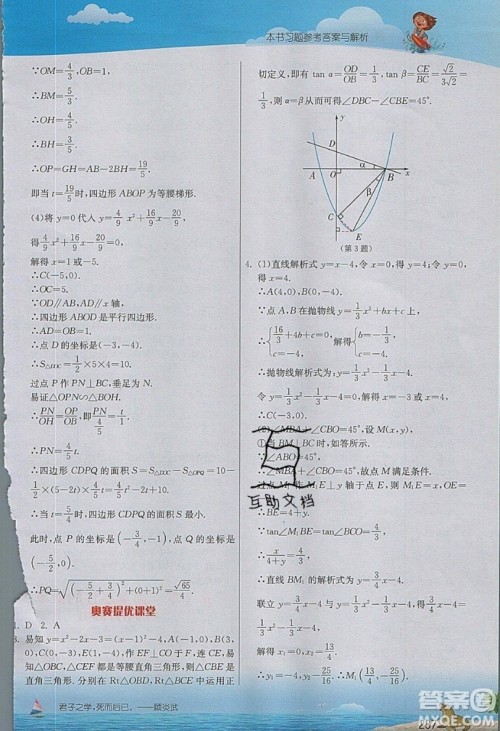 本书习题参考答案与解析
∵OM=4/3,OB=1,
∴BM=5/3.
∴OH=3/5.
∴BH=4/5
∴OP=GH=AB-2BH=19/5.
即当t=19/5时,四边形ABOP为等腰梯形.
(4)将y=0代入y=4/9x²+16/9x-20/9,
得4/9x²+16/9x-20/9=0.
解得x=1或-5.
∴C(-5,0).
∵OD∥AB,AD∥x轴,
∴四边形ABOD是平行四边形.
∴AD=OB=1.
∴点D的坐标是(-3,-4).
∴S△DOC=1/2×5×4=10.
过点P作PN⊥BC于点N.
易证△OPN∽△BOH.
∴PN/OH=OP/OB,即PN/(4/5)=t/1.
∴PN=4/5t.
∴四边形CDPQ的面积S=S△DOC-S△OPQ=10-
1/2×(5-2t)×4/5t=4/5t²-2t+10.
∴当t=5/4时,四边形CDPQ的面积最小.
此时点P的坐标是(-3/4,-1),点Q的坐标是
(-5/2,0).
∴PQ=√((-5/2+3/4)²+(0+1)²)=√65/4.
奥赛提优课堂
1. D 2. A
3. 易知y=x²-2x-3=(x-1)²-4,A(-1,0),B(3,
0),C(0,-3),E(1,-4).作EF⊥CO于F,连接CE,
易知△OBC,△CEF都是等腰直角三角形,△CBE是
直角三角形.分别在Rt△OBD,Rt△BCE中运用正
切定义,即有tan α=OD/OB=1/3,tan β=CE/BC=√2/3√2=
1/3,则α=β从而可得∠DBC-∠CBE=45°.
y
D
A O α B x
β
C
E
(第3题)
4. (1)直线解析式y=x-4,令x=0,得y=-4;令y=0,得x=4.
∴A(4,0),B(0,-4).
∵点A,B在抛物线y=1/3x²+bx+c上,
∴{16/3+4b+c=0, c=-4, 解得{b=-1/3, c=-4.
∴抛物线解析式为y=1/3x²-1/3x-4.
令y=1/3x²-1/3x-4=0,解得x=-3或x=4,
∴C(-3,0).
(2)∠MBA+∠CBO=45°,设M(x,y),
①当BM⊥BC时,如答所示.
∵∠ABO=45°,
∴∠MBA+∠CBO=45°,故点M满足条件.
过点M₁作M₁E⊥y轴于点E,则M₁E=x,OE=-y,
∴BE=4+y.
∵tan∠M₁BE=tan∠BCO=4/3,
∴x/(4+y)=4/3.
∴直线BM₁的解析式为y=3/4x-4.
联立y=3/4x-4与y=1/3x²-1/3x-4,
得3/4x-4=1/3x²-1/3x-4,
解得x₁=0,x₂=13/4.
互助文档
君子之学,死而后已。——顾炎武
答案圈